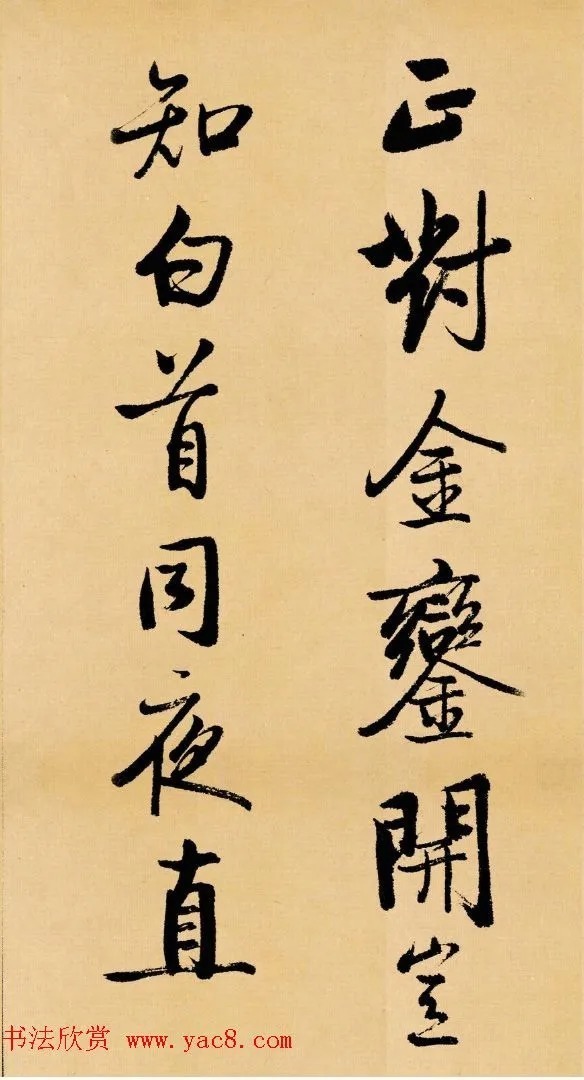 正對金鑾開豈
知白首同夜直
书法欣赏 www.yac8.com